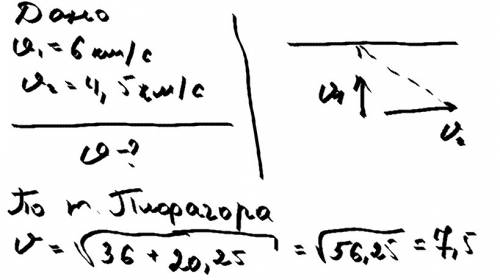 Дано
v₁ = 6 км/с
v₂ = 4,5 км/с
v - ?
v₁
v₂
По т. Пифагора
v = √(36 + 20,25) = √56,25 = 7,5